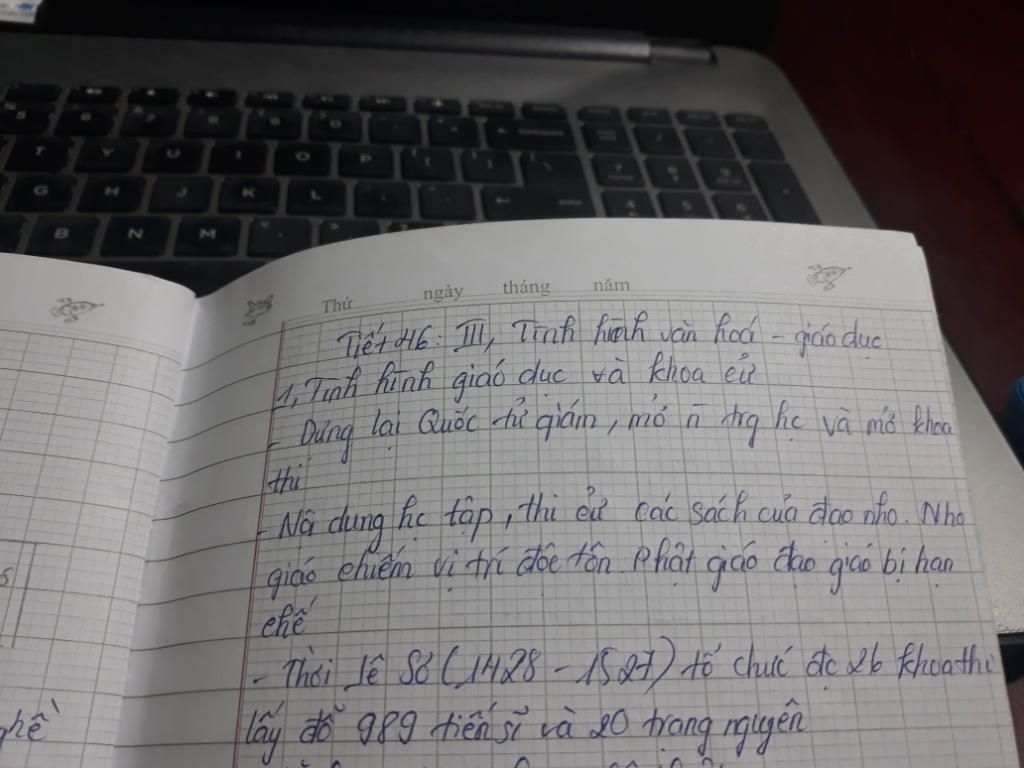 Thứ ngày tháng năm
Tiết 46: III, Tình hình văn hoá - giáo dục
1, Tình hình giáo dục và khoa cử
- Dựng lại Quốc tử giám, mở n trg hc và mở khoa
thi
- Nộ dung hc tập, thi cử các sách của đạo nho. Nho
giáo chiếm vị trí độc tôn. Phật giáo đạo giáo bị hạn
chế
- Thời Lê Sơ (1428 - 1527) tổ chức đc 26 khoa thi
lấy đỗ 989 tiến sĩ và 20 trạng nguyên
ghế
5 6 7 8 9 0
T Y U I O P
G H J K L
B N M
7 8 9
4 5 6